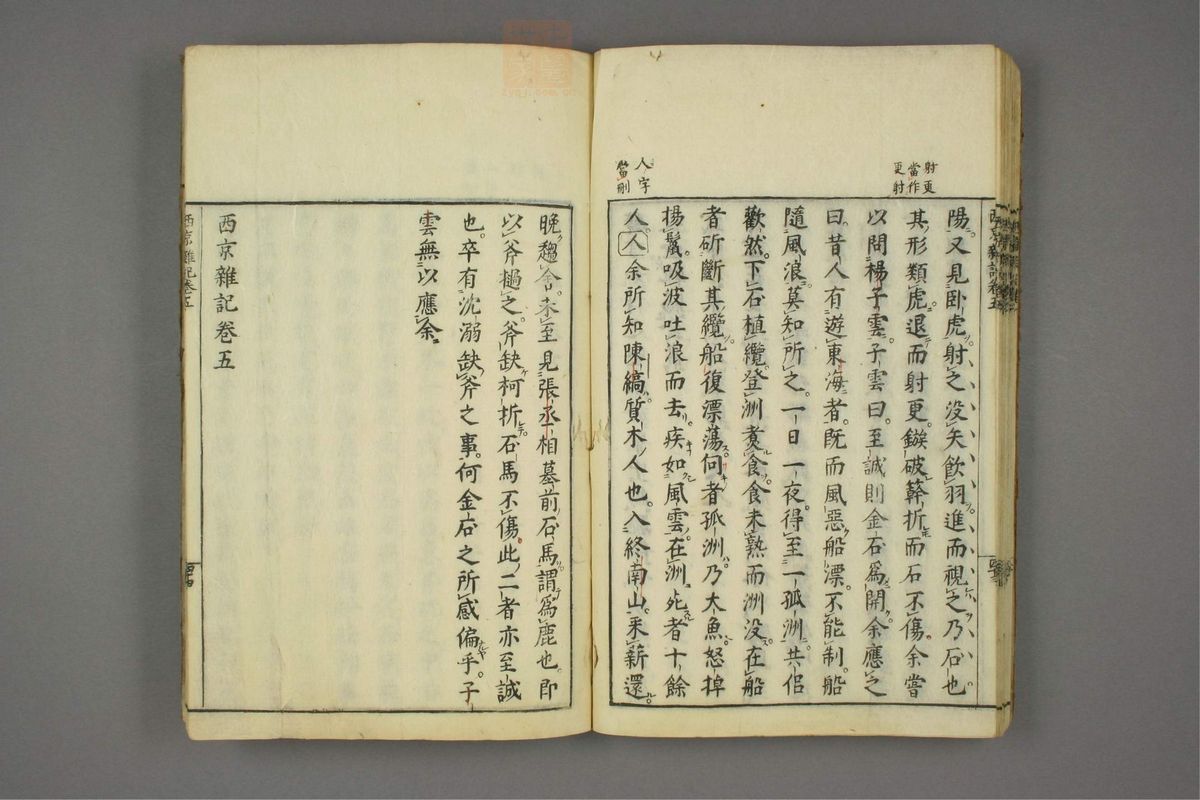 射更
當作
更射
陽又見臥虎射之没矢飲羽進而視之乃石也
其形類虎退而射更鏃破簳折而石不傷余嘗
以問楊子雲子雲曰至誠則金石為開余應之
曰昔人有遊東海者既而風惡船漂不能制船
隨風浪莫知所之一日一夜得至一孤洲共侶
歡然下石植纜登洲煑食食未熟而洲没在船
者斫斷其纜船復漂蕩向者孤洲乃大魚怒掉
揚鬣吸波吐浪而去疾如風雲在洲死者十餘
人人余所知陳縞質木人也入終南山采薪還
人字
當刪
晚趨舍未至見張丞相墓前石馬謂為鹿也即
以斧檛之斧缺柯折石馬不傷此二者亦至誠
也卒有沈溺缺斧之事何金石之所感偏乎子
雲無以應余
西京雜記卷五
西京雜記卷五